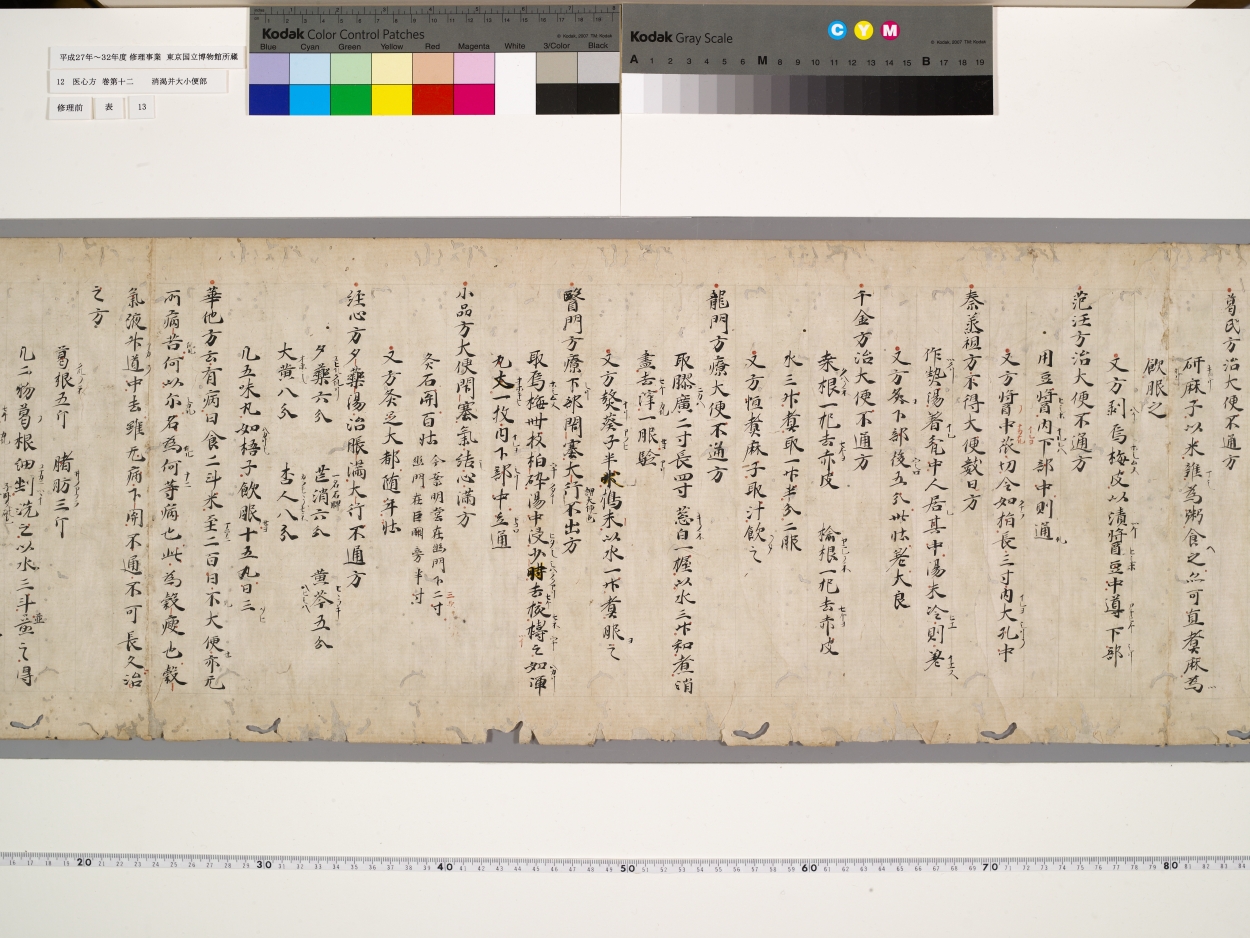 平成27年～32年度 修理事業 東京国立博物館所蔵
12 医心方 巻第十二 消渇并大小便部
修理前 表 13
Kodak Color Control Patches
Blue Cyan Green Yellow Red Magenta White 3/Color Black
© Kodak, 2007 TM: Kodak
Kodak Gray Scale
C Y M
© Kodak, 2007 TM: Kodak
A 1 2 3 4 5 6 M 8 9 10 11 12 13 14 15 B 17 18 19
葛氏方治大便不通方
研麻子以米雜為粥食之亦可直煮麻為
飲服之
又方剥烏梅皮以漬醤豆中導下部
范汪方治大便不通方
用豆醤内下部中則通
又方醤中茨切令如指長三寸内大孔中
秦丞祖方不得大便數日方
作熱湯着瓮中人居其中湯未冷則
又方灸下部後五分卅壮大良
千金方治大便不通方
桒根一把去赤皮 楡根一把去赤皮
水三升煮取一升半分二服
又方恒煮麻子取汁飲之
龍門方療大便不通方
取膠廣二寸長四寸葱白一握以水三升和煮消
盡去滓頓服驗
又方葵子半升搗末以水一升煮服之
醫門方療下部閇塞大行不出方
取烏梅卅枚柏碎湯中浸少時去核搗之如渾
丸大一枚内下部中立通
小品方大便閇塞氣結心滿方
灸石開百壮
又方灸足大都随年壮
経心方夕藥湯治脹滿大行不通方
夕藥六分 芒消六分 黄芩五分
大黄八分 杏人八分
凡五味丸如梧子飲服十五丸日三
華他方云有病曰食二斗米至二百日不大便亦无
所病苦何以尓名為何等病也此為穀瘦也穀
氣液外道中去雖无病下閇不通不可長久治
之方
葛根五斤 猪肪三斤
凡二物葛根細剉洗之以水三斗煮之得
20 30 40 50 60 70 80